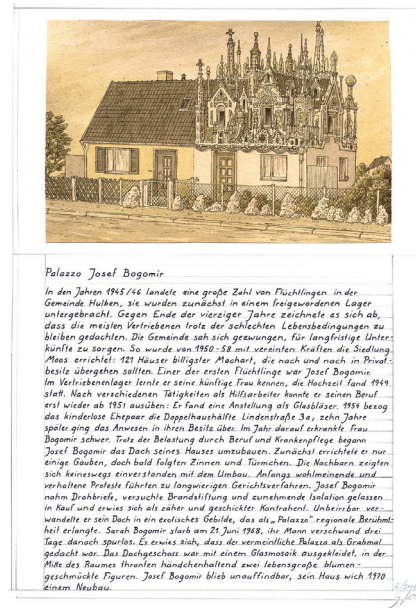 Palazzo Josef Bogomir
In den Jahren 1945/46 landete eine große Zahl von Flüchtlingen in der
Gemeinde Hulben, sie wurden zunächst in einem freigewordenen Lager
untergebracht. Gegen Ende der vierziger Jahre zeichnete es sich ab,
dass die meisten Vertriebenen trotz der schlechten Lebensbedingungen zu
bleiben gedachten. Die Gemeinde sah sich gezwungen, für langfristige Unter-
künfte zu sorgen. So wurde von 1950-58 mit vereinten Kräften die Siedlung
Moos errichtet: 121 Häuser billigster Machart, die nach und nach in Privat-
besitz übergehen sollten. Einer der ersten Flüchtlinge war Josef Bogomir.
Im Vertriebenenlager lernte er seine künftige Frau kennen, die Hochzeit fand 1949
statt. Nach verschiedenen Tätigkeiten als Hilfsarbeiter konnte er seinen Beruf
erst wieder ab 1951 ausüben: Er fand eine Anstellung als Glasbläser. 1954 bezog
das kinderlose Ehepaar die Doppelhaushälfte Lindenstraße 3a, zehn Jahre
später ging das Anwesen in ihren Besitz über. Im Jahr darauf erkrankte Frau
Bogomir schwer. Trotz der Belastung durch Beruf und Krankenpflege begann
Josef Bogomir das Dach seines Hauses umzubauen. Zunächst errichtete er nur
einige Gauben, doch bald folgten Zinnen und Türmchen. Die Nachbarn zeigten
sich keineswegs einverstanden mit dem Umbau. Anfangs wohlmeinende und
verhaltene Proteste führten zu langwierigen Gerichtsverfahren. Josef Bogomir
nahm Drohbriefe, versuchte Brandstiftung und zunehmende Isolation gelassen
in Kauf und erwies sich als zäher und geschickter Kontrahent. Unbeirrbar ver-
wandelte er sein Dach in ein exotisches Gebilde, das als „Palazzo" regionale Berühmt-
heit erlangte. Sarah Bogomir starb am 21. Juni 1968, ihr Mann verschwand drei
Tage danach spurlos. Es erwies sich, dass der vermeintliche Palazzo als Grabmal
gedacht war. Das Dachgeschoss war mit einem Glasmosaik ausgekleidet, in der
Mitte des Raumes thronten händchenhaltend zwei lebensgroße blumen-
geschmückte Figuren. Josef Bogomir blieb unauffindbar, sein Haus wich 1970
einem Neubau.